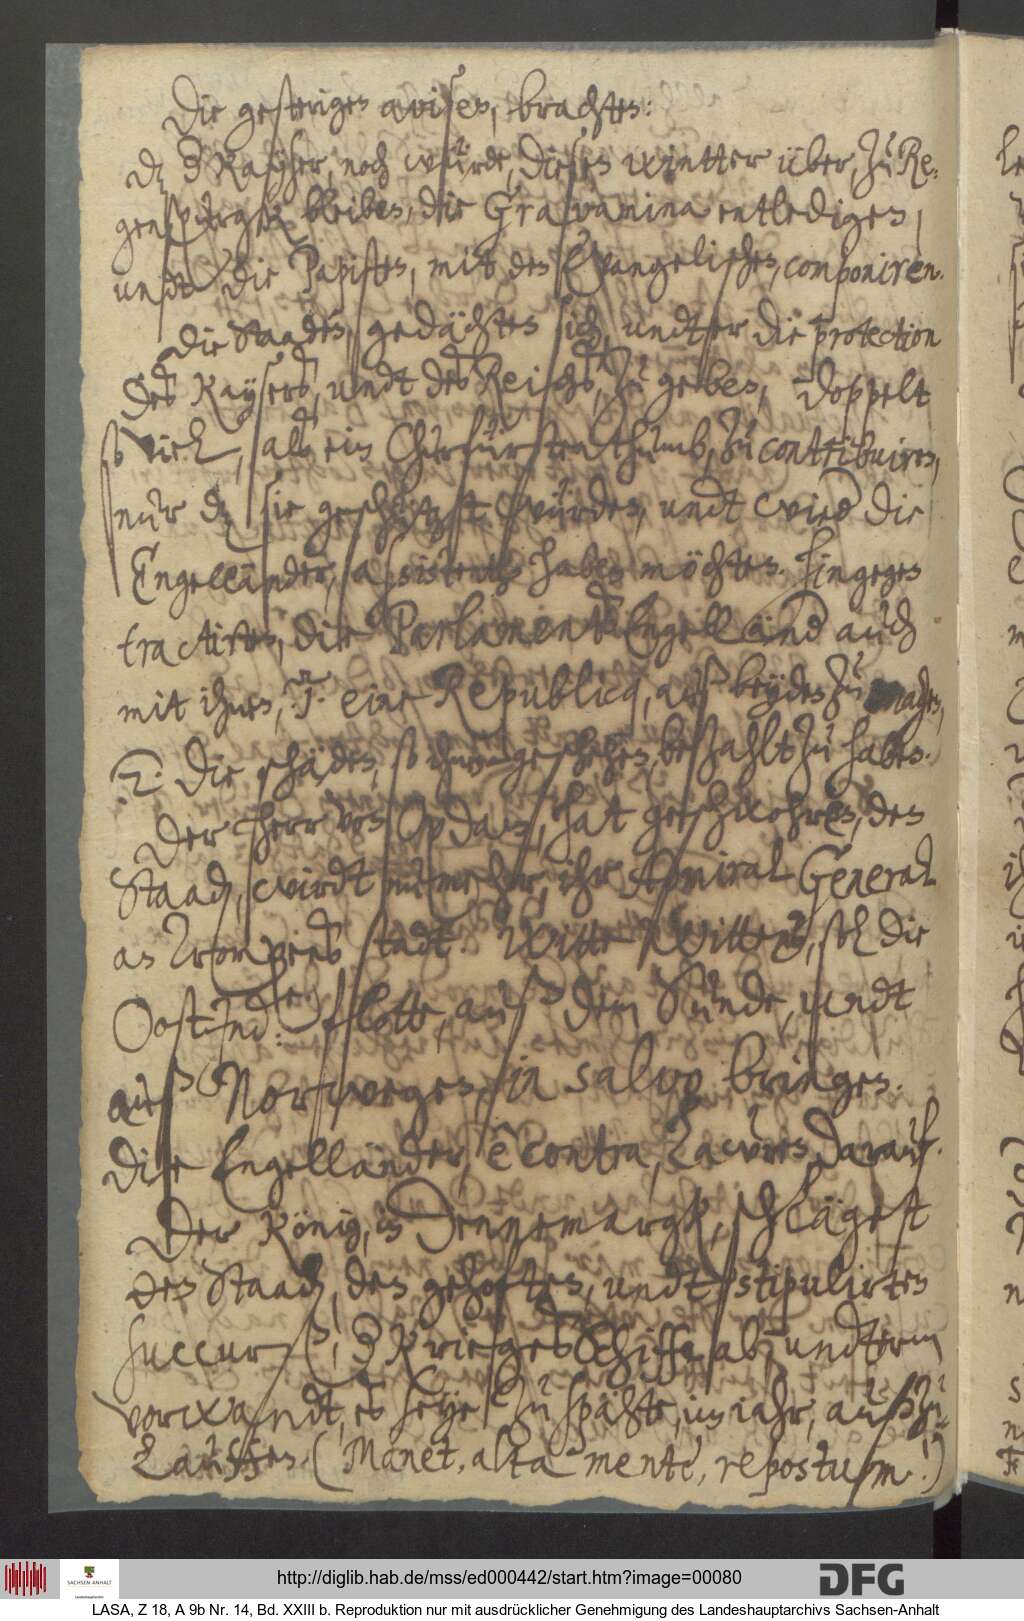 Die gesterigen avisen, brachten:
dz der Kayser, noch würde, diesen wintter über, zu Re-
genspurgk bleiben, die Gravamina entledigen,
undt die Papisten, mit den Evangelischen, componiren.
Die Staaden, gedächten sich, undter die protection
des Kaysers, undt des Reichs, zu geben, doppelt
so viel, alß ein Churfürstenthumb, zu contribuiren,
nur dz sie geschützt würden, undt wied die
Engelländer, assistentz haben möchten. Hingegen
tractirten, die Parlaments Engelländ auch
mit ihnen, 1. eine Republicq, auß beyden zu machen,
2. Die schäden, so ihnen geschehen, bezahlt zu haben.
Der Herr von Opdam, hat geschwohren, den
Staad, wirdt nunmehr, ihr Admiral General
an Trompens stadt. Witte Wittens, soll die
Oost Ind: flotte, auß dem Sunde, undt
auß Norwegen, in salvo bringen.
Die Engelländer, è contra, lauren darauf.
Der König, in Dennemargk, schlägest
den Staad, den gehoften, undt stipulirten
succurß, der Kriegs Schiffe ab, undterm
vorwandt, es seye zu späht, im jahr, außzu-
lauffen. (Manet, alta mente, repostum.!)
http://diglib.hab.de/mss/ed000442/start.htm?image=00080
SACHSEN-ANHALT
DFG
LASA, Z 18, A 9b Nr. 14, Bd. XXIII b. Reproduktion nur mit ausdrücklicher Genehmigung des Landeshauptarchivs Sachsen-Anhalt